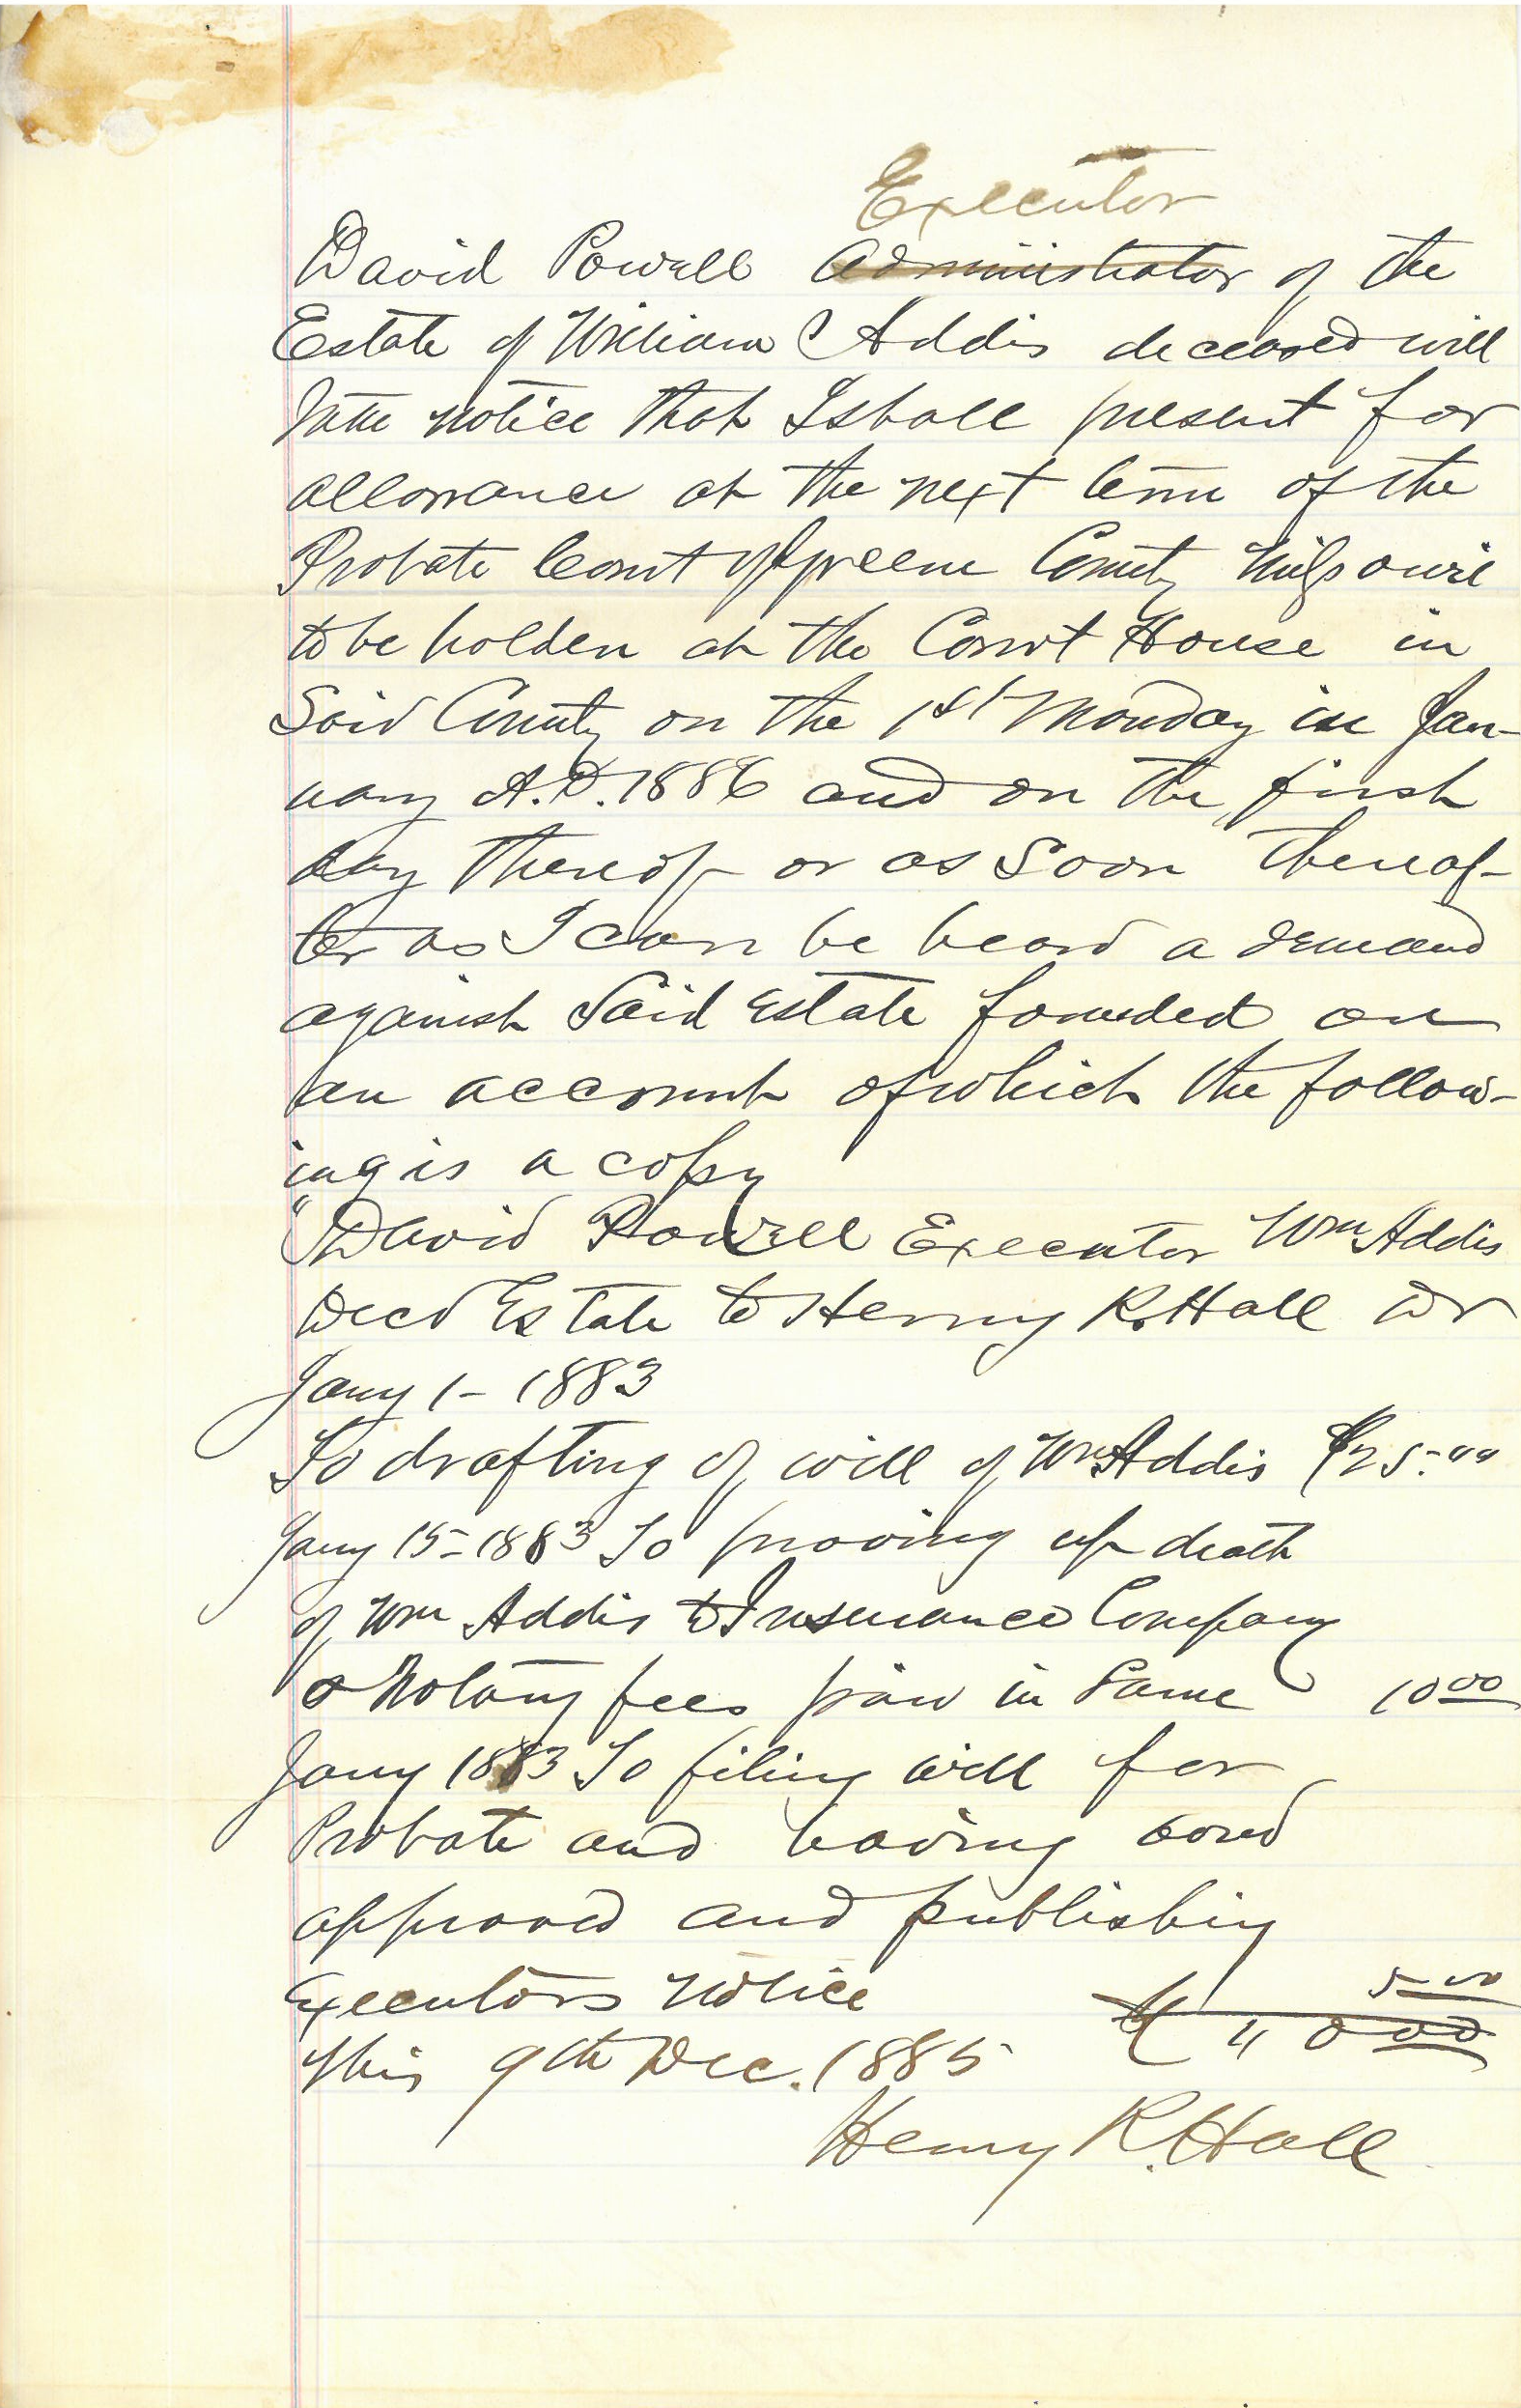 Executor
David Powell Administrator of the
Estate of William Addis deceased will
take notice that I shall present for
allowance at the next term of the
Probate Court of Greene County Missouri
to be holden at the Court House in
Said County on the 1st Monday in Jan-
uary A.D. 1886 and on the first
day thereof or as Soon thereaf-
ter as I can be heard a demand
against Said Estate founded on
an account of which the follow-
ing is a copy
"David Powell Executor Wm Addis
Decd Estate to Henry R. Hall Dr
Jany 1 - 1883
To drafting of will of Wm Addis $25.00
Jany 15 - 1883 To proving up death
of Wm Addis to Insurance Company
& Notary fees paid in Same 10 00
Jany 1883 To filing will for
Probate and having bond
approved and publishing
Executors Notice 5 00
This 9th Dec. 1885 $ 40 00
Henry R. Hall